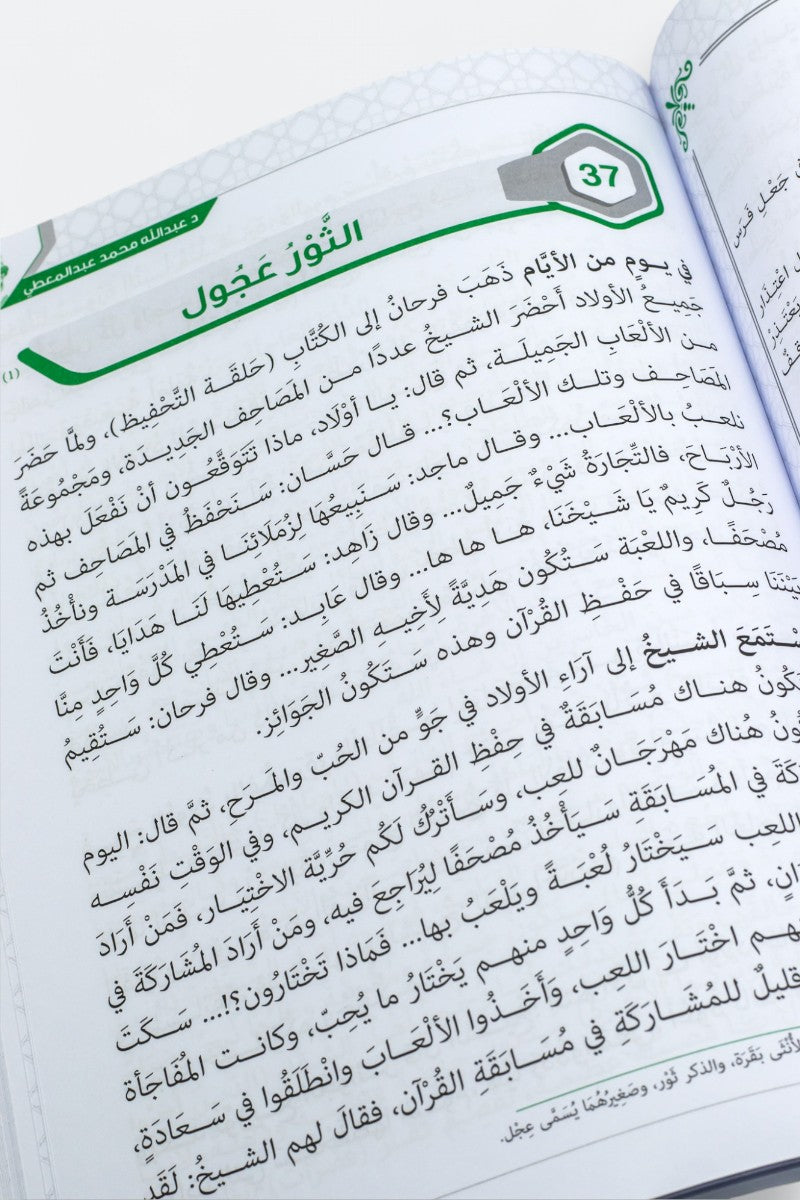 د عبدالله محمد عبدالمعطي
37
الثَّوْرُ عَجُول (1)
في يومٍ من الأيَّام ذَهَبَ فرحانُ إلى الكُتَّابِ (حَلقَة التَّحْفِيظ)، ولمَّا حَضَرَ
جَمِيعُ الأولاد أَحْضَرَ الشيخُ عددًا من المَصَاحِف الجَدِيدَة، ومَجْمُوعَةً
من الألْعَابِ الجَمِيلَة، ثم قال: يا أوْلَاد، ماذا تَتَوَقَّعُون أنْ نَفْعَلَ بهذه
المَصَاحِف وتلك الألْعَاب؟... قال حَسَّان: سَنَحْفَظُ في المَصَاحِف ثم
نلعبُ بالألْعَاب... وقال ماجد: سَنَبِيعُهَا لِزُمَلَائِنَا في المَدْرَسَة ونأْخُذُ
الأرْبَاحَ، فالتِّجَارَةُ شَيْءٌ جَمِيلٌ... وقال زَاهِد: سَتُعْطِيهَا لَنَا هَدَايَا، فَأَنْتَ
رَجُلٌ كَرِيمٌ يَا شَيْخَنَا، ها ها ها... وقال عَابِد: سَتُعْطِي كُلَّ وَاحِدٍ مِنَّا
مُصْحَفًا، واللعْبَة سَتُكُون هَدِيَّةً لِأَخِيهِ الصَّغِير... وقال فرحان: سَتُقِيمُ
بَيْنَنَا سِبَاقًا في حَفْظِ القُرْآن وهذه سَتَكُونُ الجَوَائِز.
الشيخُ إلى آرَاءِ الأولاد في جَوٍّ من الحُبّ والمَرَحِ، ثمَّ قال: اليوم
هناك مُسَابَقَةٌ في حِفْظِ القرآن الكريم، وفي الوَقْتِ نَفْسِه
هُناك مَهْرَجَانٌ للعِب، وسَأَتْرُكُ لَكُم حُرِّيَّة الاخْتِيَار، فَمَنْ أَرَادَ
في المُسَابَقَةِ سَيَأْخُذُ مُصْحَفًا لِيُرَاجِعَ فيه، ومَنْ أَرَادَ المُشَارَكَةَ في
اللعِب سَيَخْتَارُ لُعْبَةً ويَلْعَبُ بها... فَمَاذا تَخْتَارُون؟!... سَكَتَ
ثمَّ بَدَأَ كُلُّ وَاحِدٍ منهم يَخْتَارُ ما يُحِبّ، وكانت المُفَاجَأة
اخْتَارَ اللعِب، وَأَخَذُوا الألْعَابَ وانْطَلَقُوا في سَعَادَةٍ،
قليلٌ للمُشَارَكَةِ في مُسَابَقَةِ القُرْآن، فقالَ لهم الشيخُ: لَقَد
الأُنْثَى بَقَرَة، والذكر ثَوْر، وصَغِيرُهُمَا يُسَمَّى عِجْل.
جَعْلِ فَرَس
اعْتِذَار